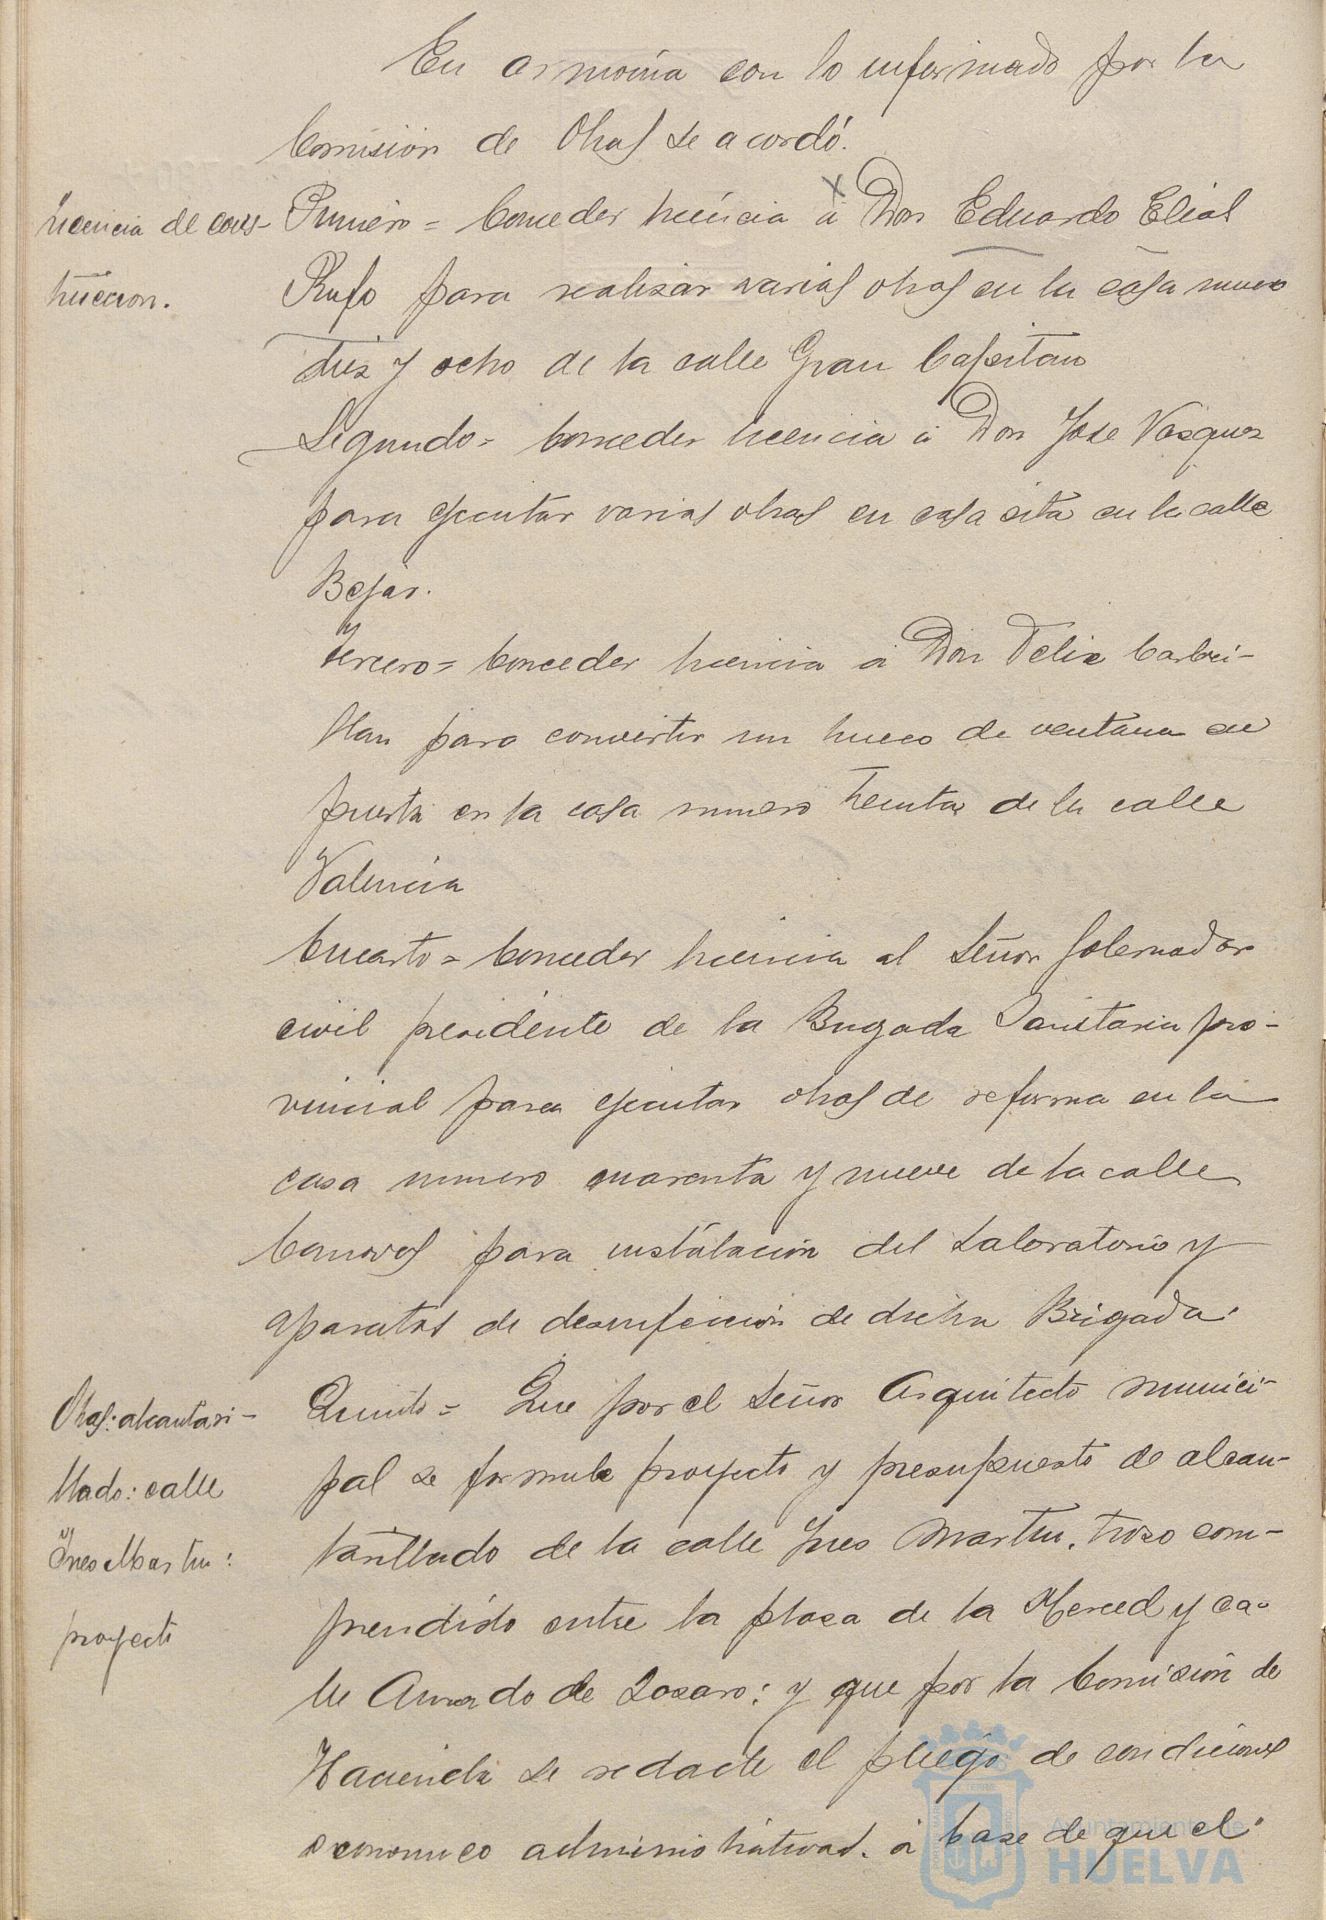 En armonia con lo informado por la
Comisión de Obras se acordó.
Licencia de cons-
trucción.
Primero = Conceder licencia á Don Eduardo Elias
Rufo para realizar varias obras en la casa numero
diez y ocho de la calle Gran Capitan
Segundo = Conceder licencia á Don Jose Vasquez
para ejecutar varias obras en casa sita en la calle
Bejar.
Tercero = Conceder licencia á Don Felix Carbri-
llan para convertir un hueco de ventana en
puerta en la casa numero treinta de la calle
Valencia
Cuarto = Conceder licencia al Señor Gobernador
civil presidente de la Brigada Sanitaria pro-
vincial para ejecutar obras de reforma en la
casa numero cuarenta y nueve de la calle
Canovas para instalación del Laboratorio y
aparatos de desinfección de dicha Brigada.
Obras: alcantari-
llado: calle
Ines Martin:
proyecto
Quinto = Que por el Señor Arquitecto munici-
pal se formule proyecto y presupuesto de alcan-
tarillado de la calle Ines Martin, trozo com-
prendido entre la plaza de la Merced y ca-
lle Amado de Lazaro: y que por la Comisión de
Hacienda se redacte el pliego de condiciones
economico administrativas. á base de que el
Ayuntamiento de
HUELVA